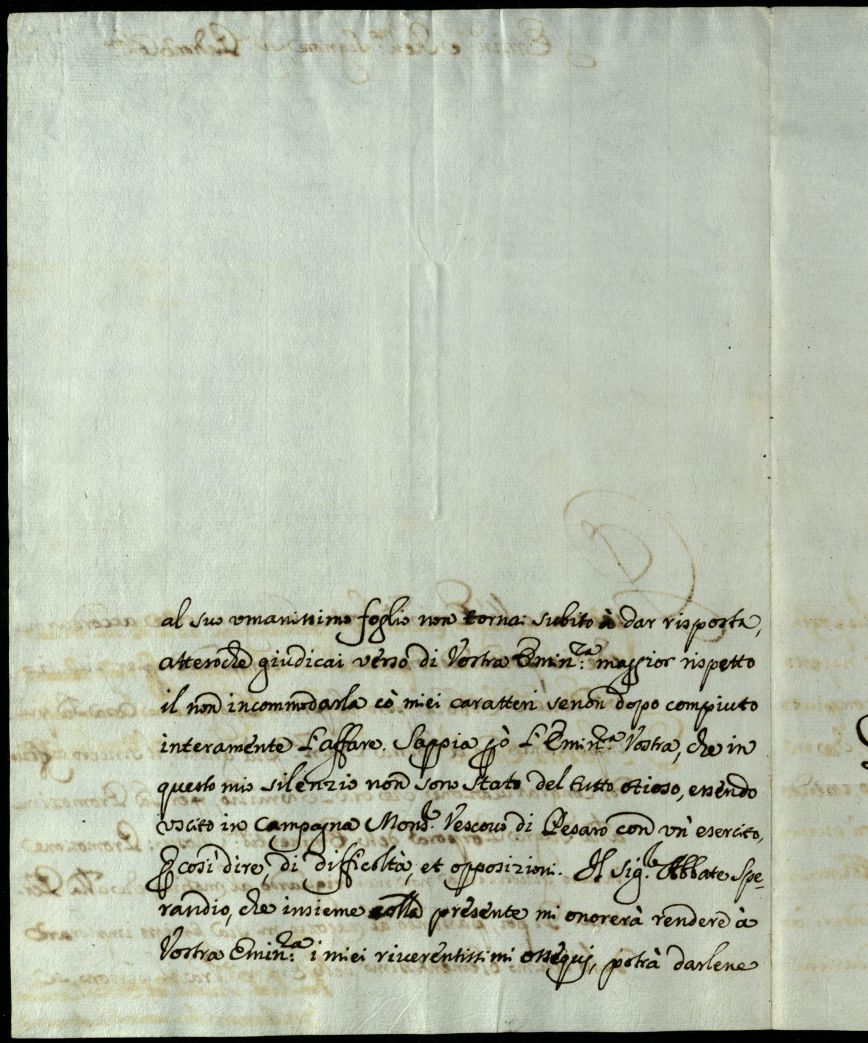 al suo umanissimo foglio non torna: subito à dar risposta,
atteroche giudicai verso di Vostra Emin:za maggior rispetto
il non incommodarla cò miei caratteri senon dopo compiuto
interamente L'affare. Sappia però L'Emin:za Vostra, che in
questo mio silenzio non sono stato del tutto otioso, essendo
uscito in Campagna Mons.r Vescovo di Pesaro con un' esercito,
p cosi dire, di difficoltà, et opposizioni. Il Sig.r Abbate Spe=
randio, che insieme colla presente mi onorerà rendere à
Vostra Emin:za i miei riverentissimi ossequij, potrà darlene